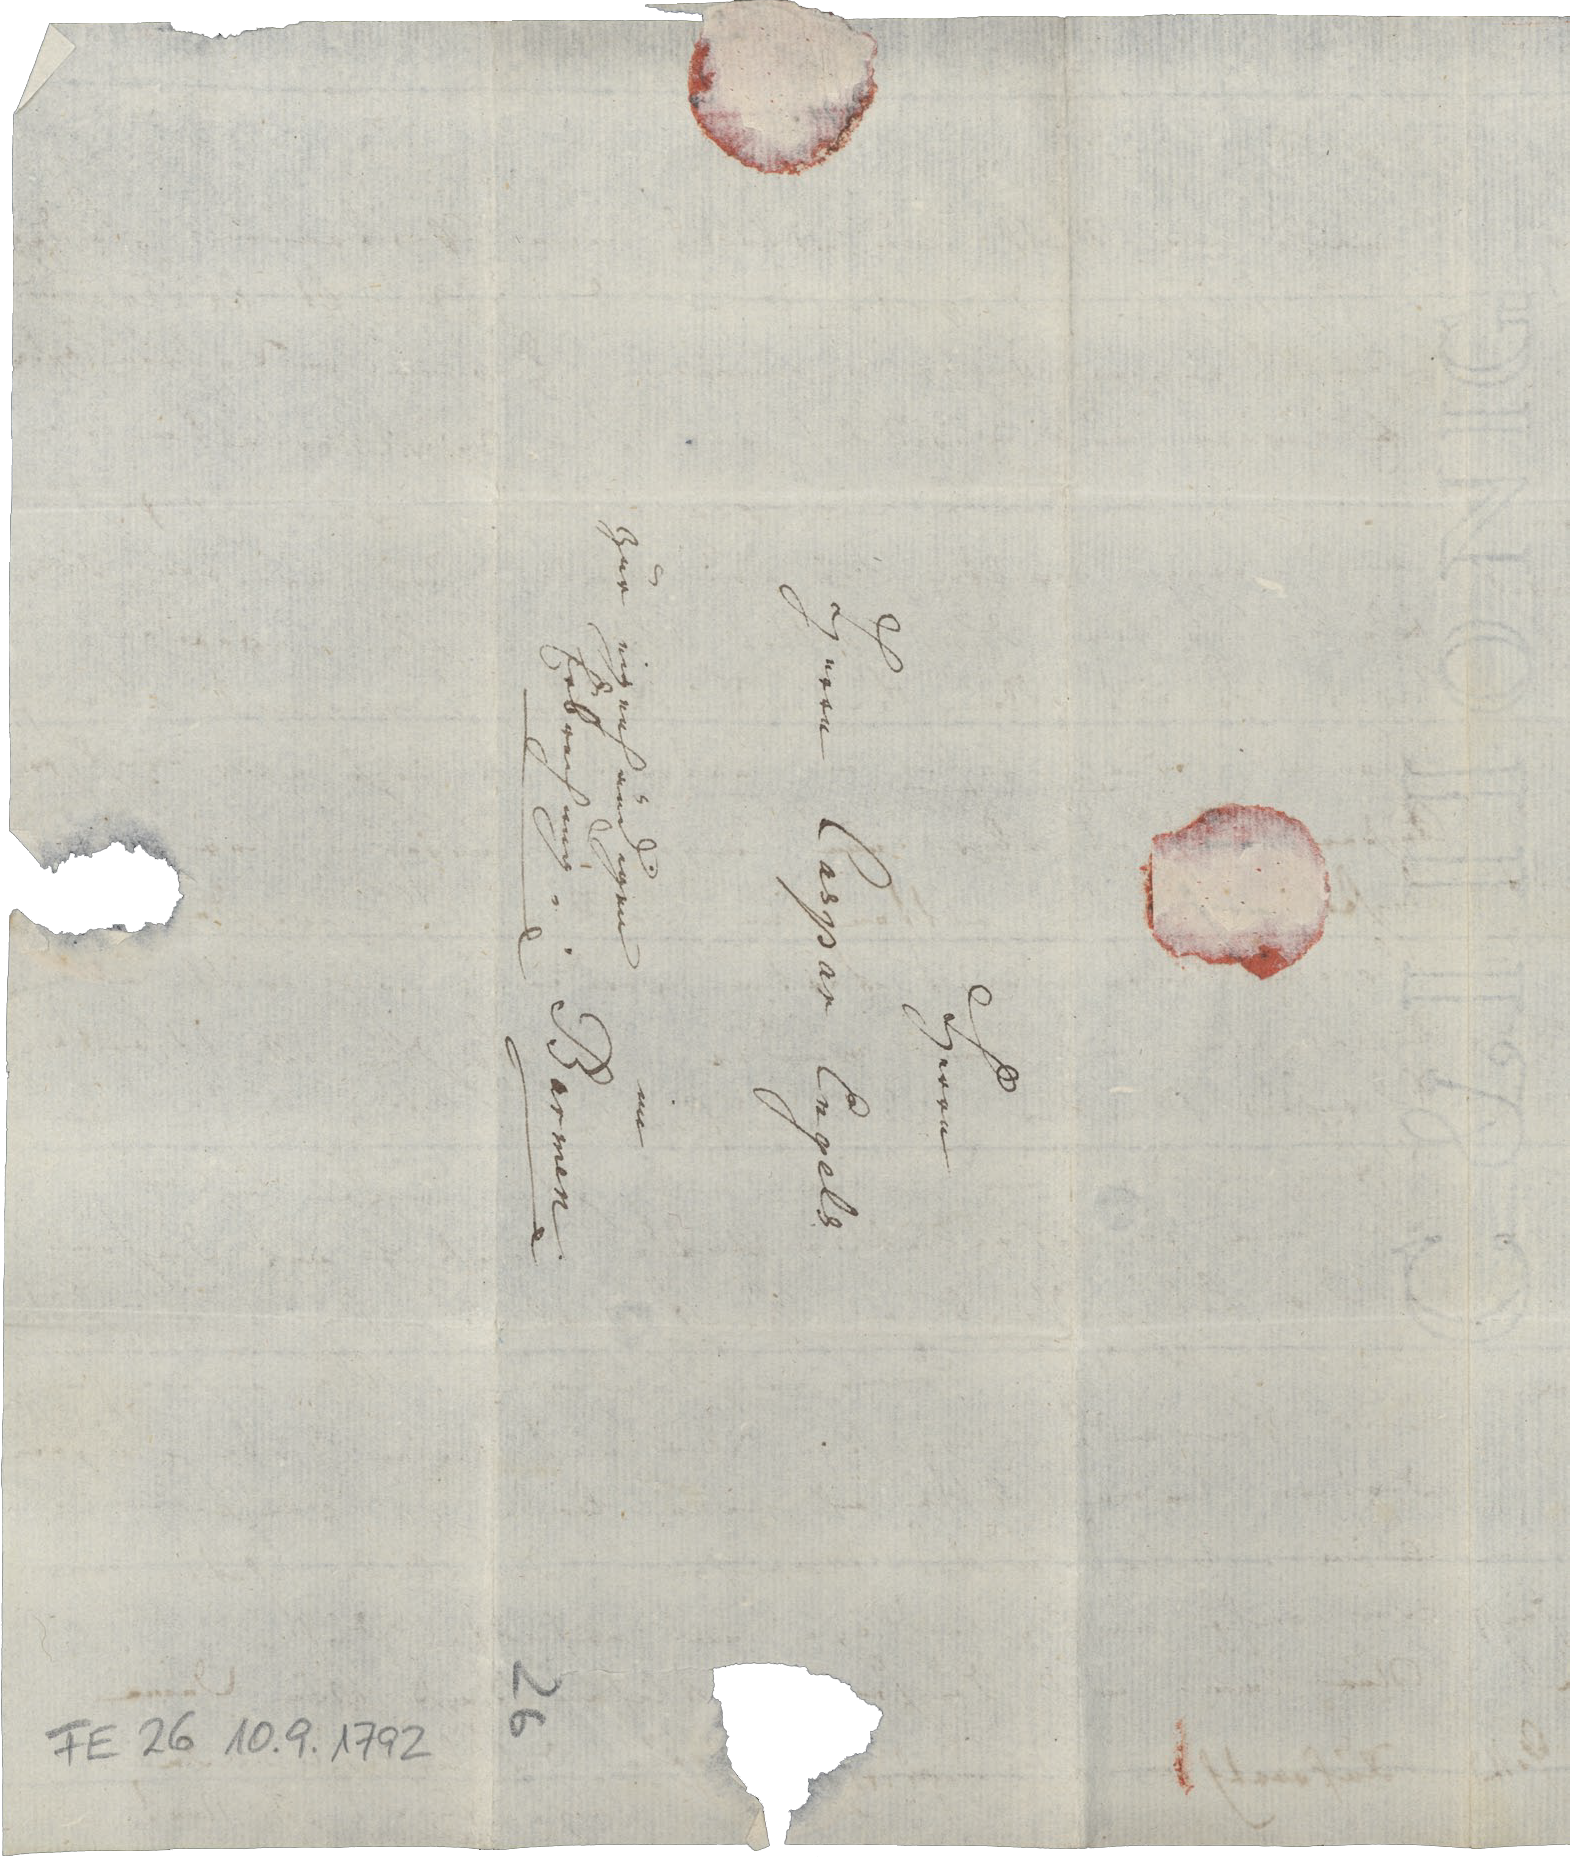 Herrn
Herrn Caspar Engels
in
Barmen.
zur eigenhändigen
Erbrechung.
26
FE 26 10.9.1792